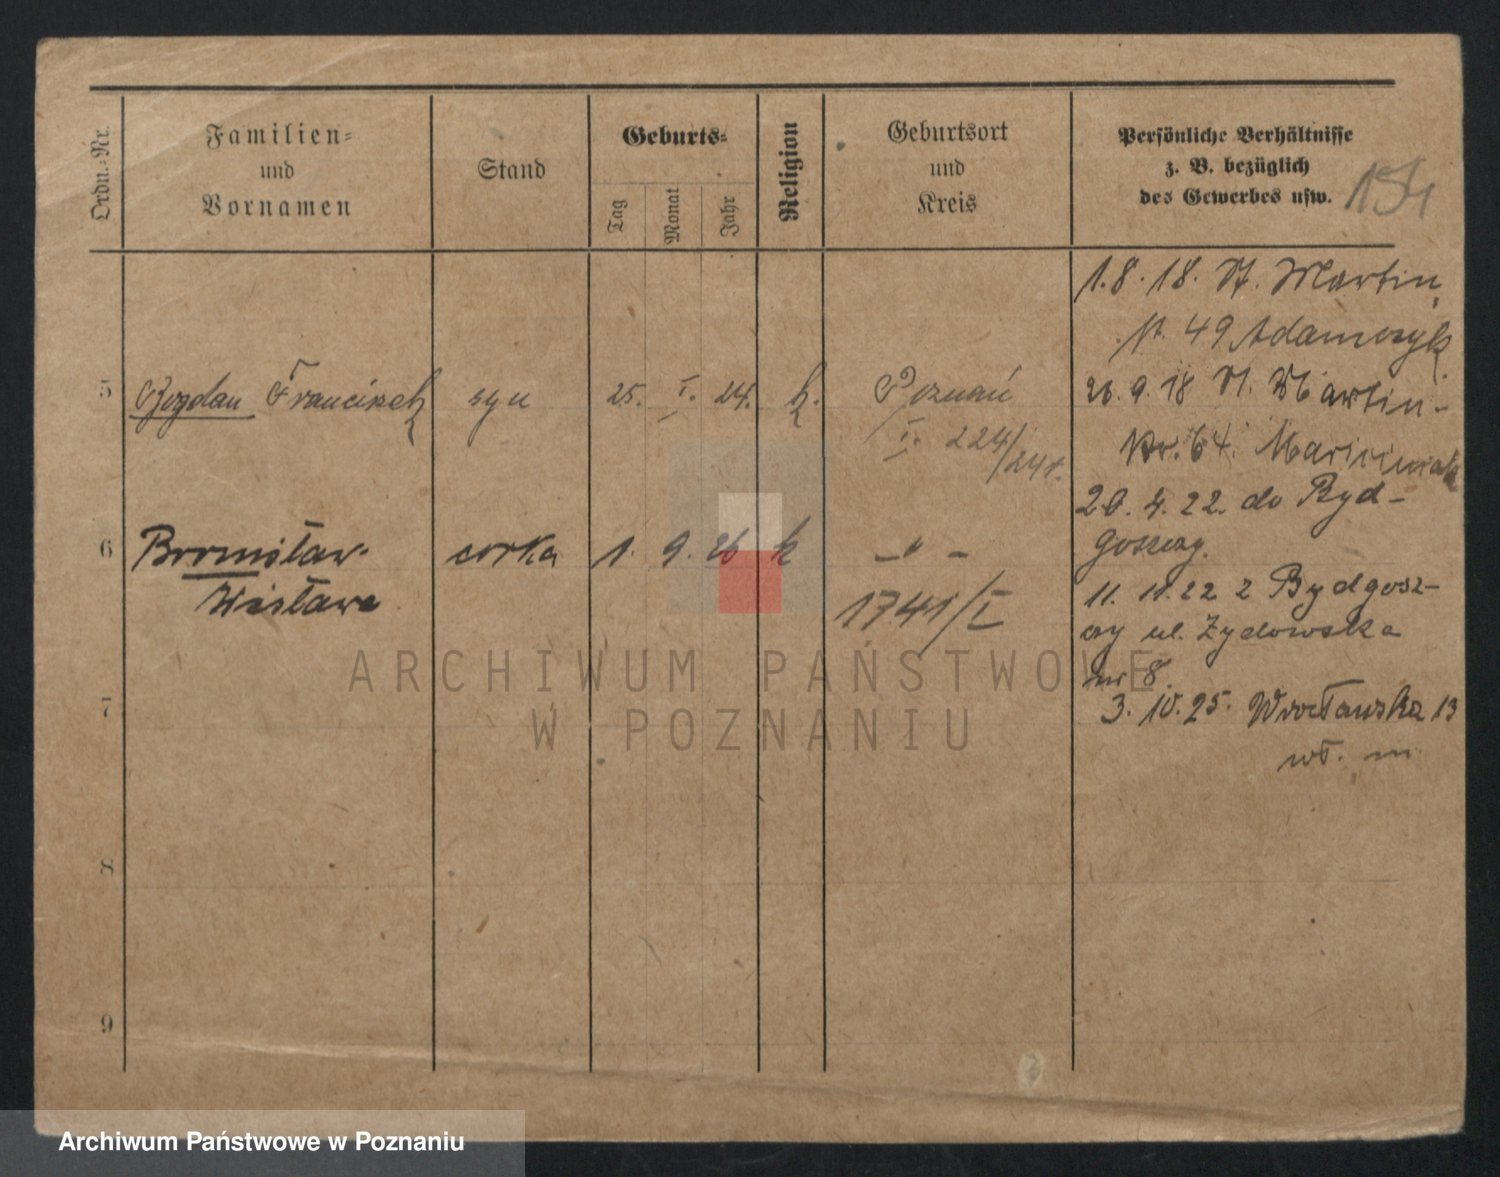 Ordn.-Nr.
Familien-
und
Vornamen
Stand
Geburts-
Tag
Monat
Jahr
Religion
Geburtsort
und
Kreis
Persönliche Verhältnisse
z. B. bezüglich
des Gewerbes usw.
154
1.8.18. St. Martin
st. 49 Adamczyk
5 Bogdan Franciszek syn 25. I. 24. k. Poznań
I. 224/24
26.9.18 St. Martin-
Nr. 64.
6 Bronisława córka 1. 9. 26 k — " —
Wisława
1741/I
20.4.22. do Byd-
goszczy.
11.11.22 z Bydgosz-
czy ul. Żydowska
nr 8.
7
3.10.25. Wrocławska 13
wł. m.
8
9
ARCHIWUM PAŃSTWOWE
W POZNANIU
Archiwum Państwowe w Poznaniu